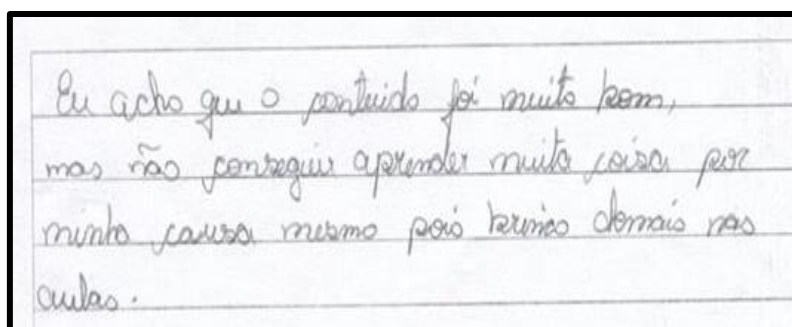 Eu acho que o conteúdo foi muito bom,
mas não conseguir aprender muita coisa por
minha causa mesmo pois brinco demais nas
aulas.